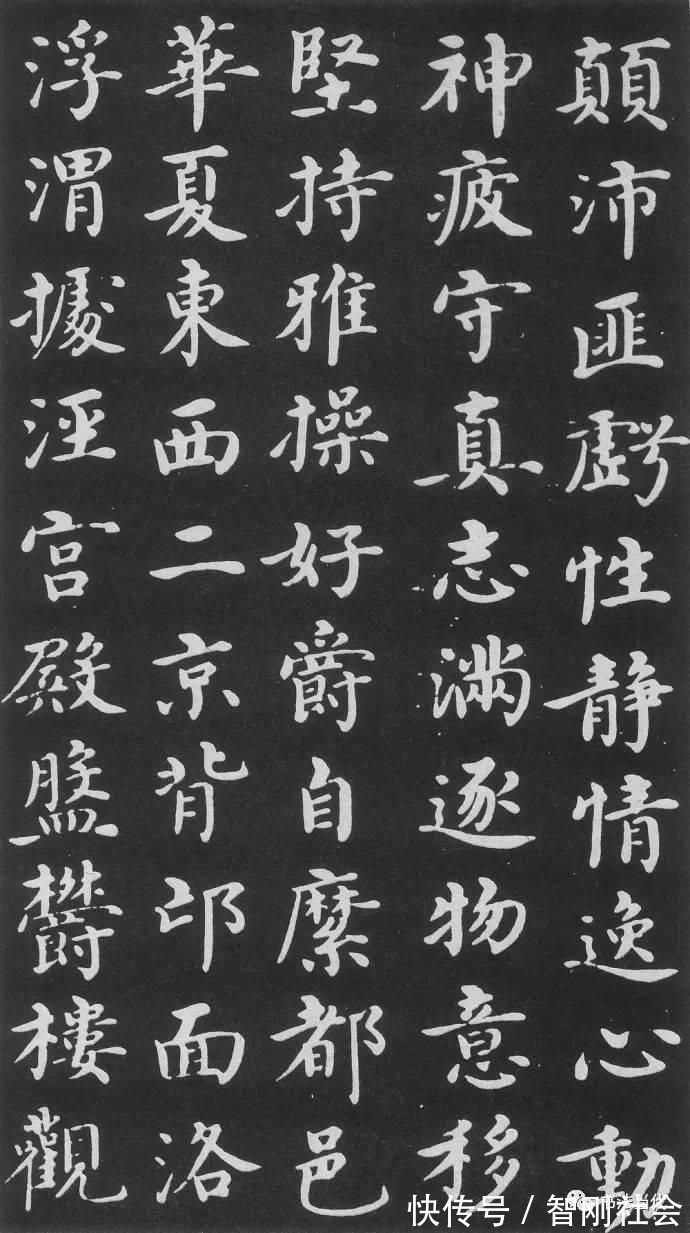 顛沛匪虧性靜情逸心動
神疲守真志滿逐物意移
堅持雅操好爵自縻都邑
華夏東西二京背邙面洛
浮渭據涇宮殿盤鬱樓觀
快传号／智刚社会